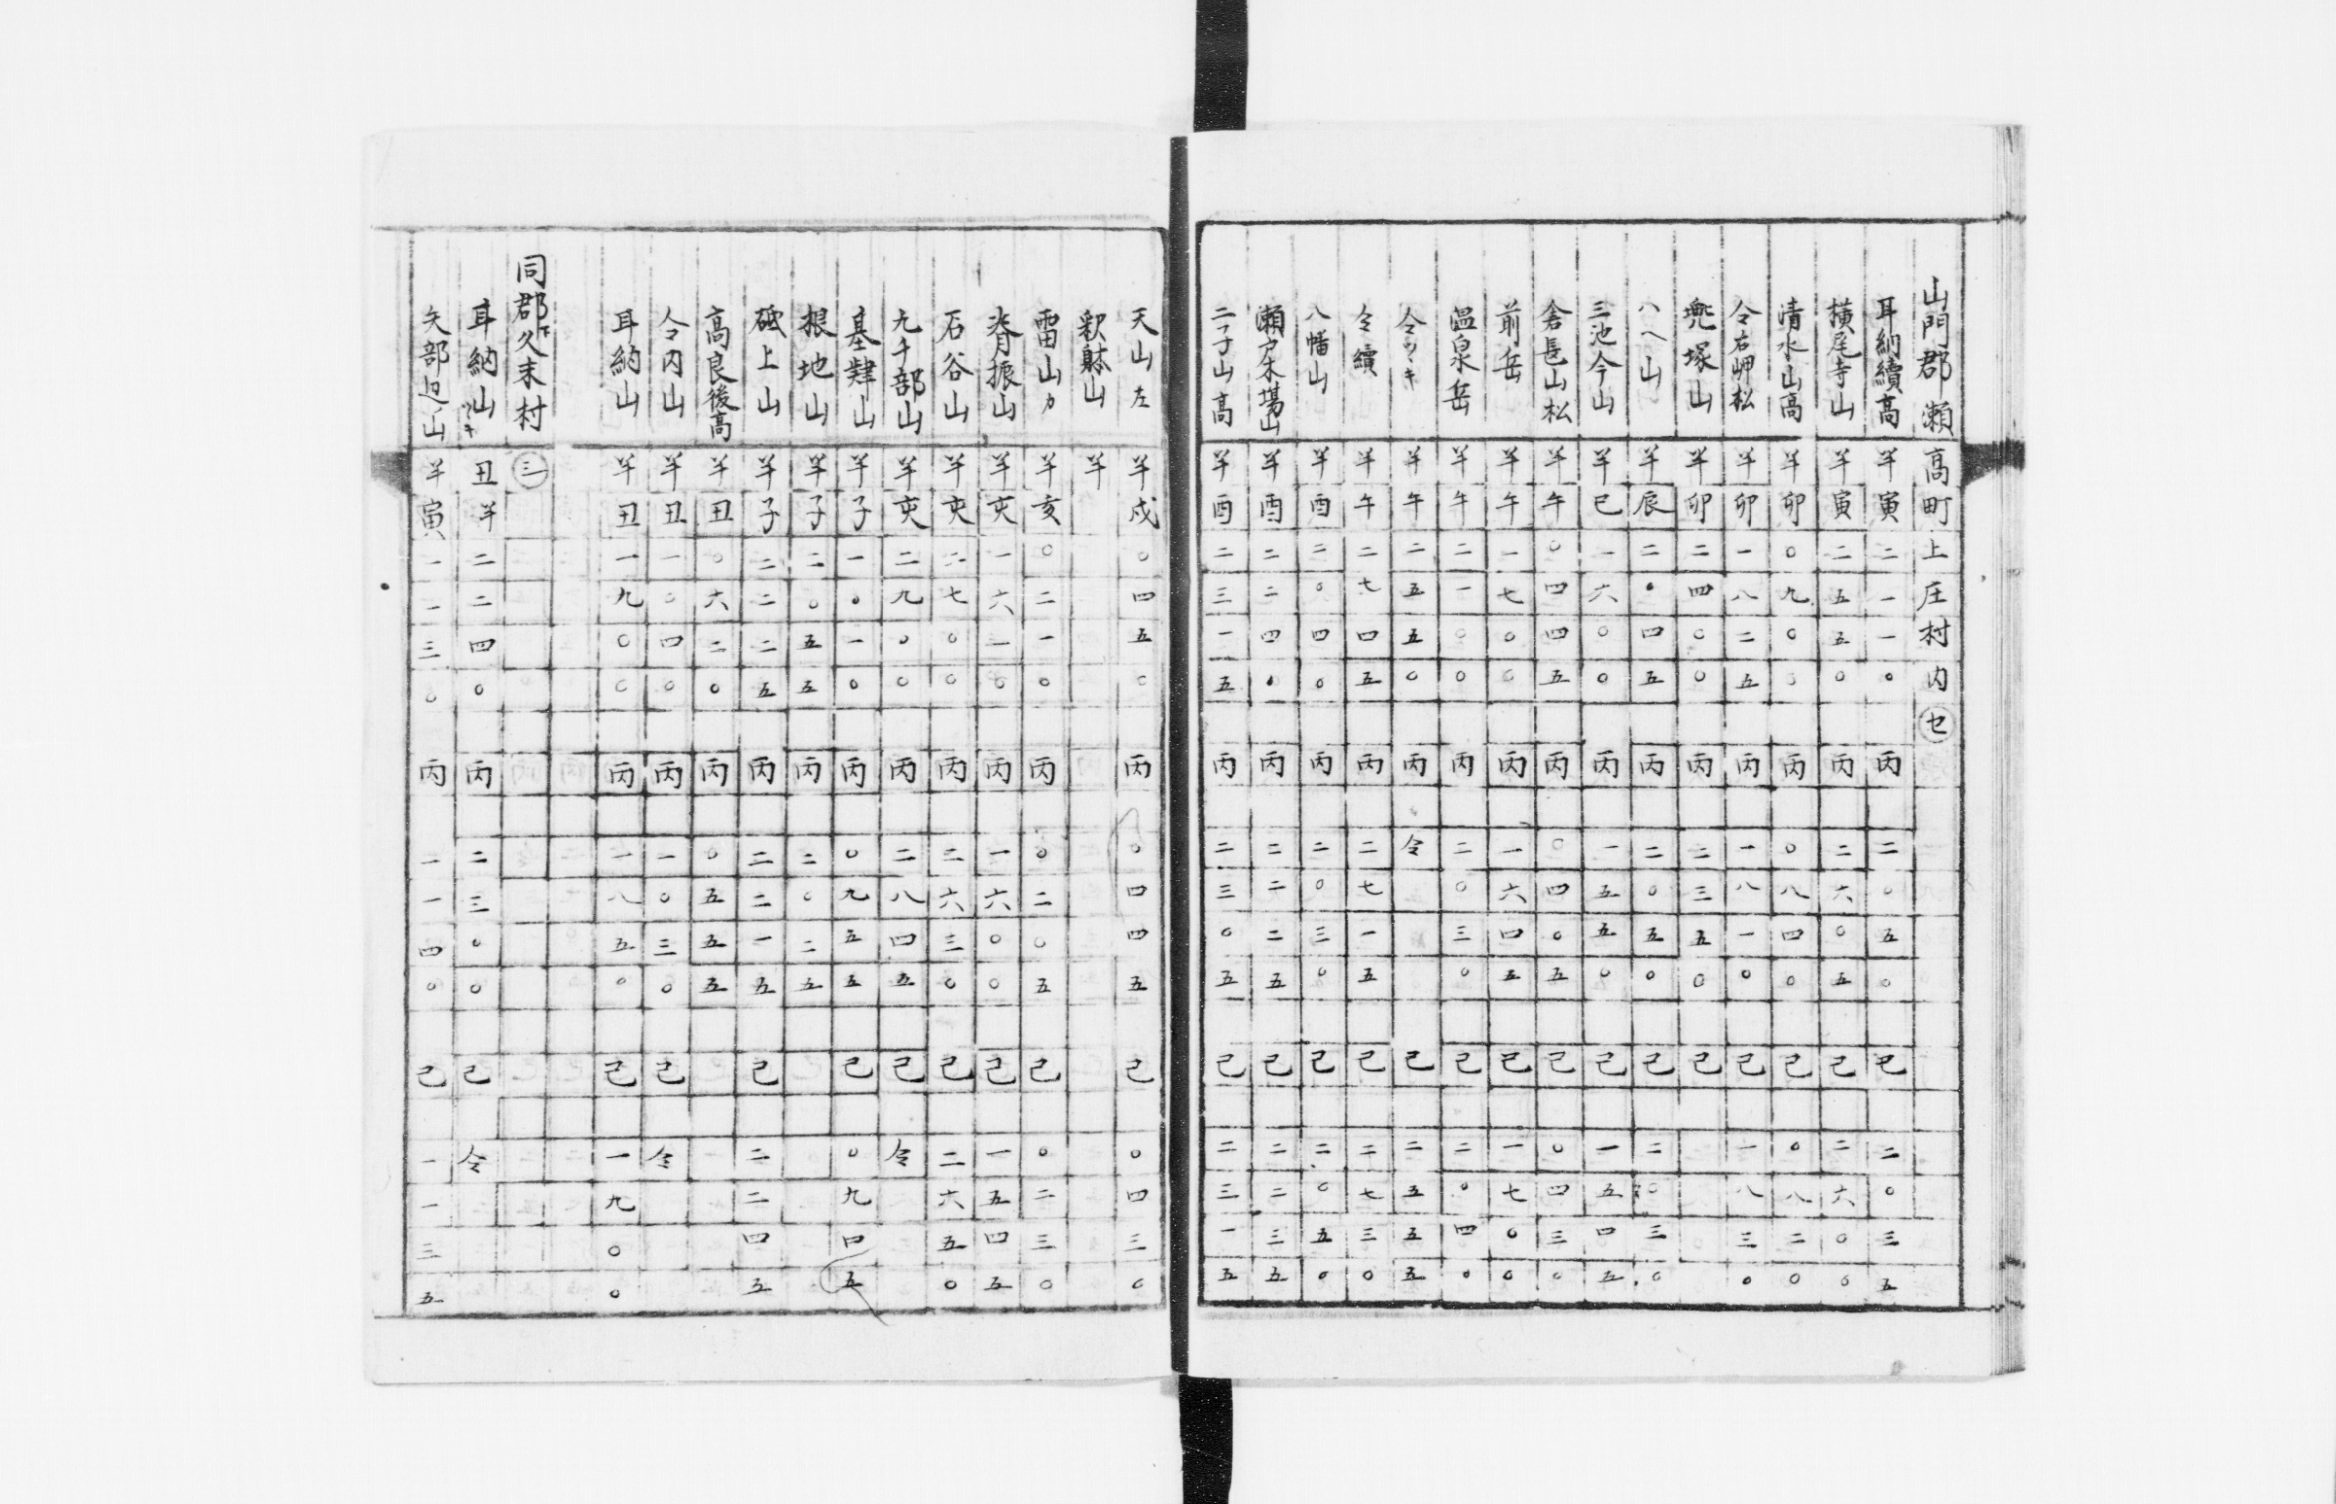 山門郡瀬高町上庄村内㊆
耳納續高 羊寅 二一一〇 丙 二〇五〇 己 二〇三五
横尾寺山 羊寅 二五五〇 丙 二六〇五 己 二六〇〇
清水山高 羊卯 〇九〇〇 丙 〇八四〇 己 〇八二〇
仝右岬松 羊卯 一八二五 丙 一八一〇 己 一八三〇
兜塚山 羊卯 二四〇〇 丙 二三五〇 己
八へ山 羊辰 二〇四五 丙 二〇五〇 己 二〇三〇
三池今山 羊巳 一六〇〇 丙 一五五〇 己 一五四五
倉邑山松 羊午 〇四四五 丙 〇四〇五 己 〇四三〇
前岳 羊午 一七〇〇 丙 一六四五 己 一七〇〇
温泉岳 羊午 二一〇〇 丙 二〇三〇 己 二〇四〇
仝ツヽキ 羊午 二五五〇 丙 仝 己 二五五五
仝續 羊午 二七四五 丙 二七一五 己 二七三〇
八幡山 羊酉 二〇四〇 丙 二〇三〇 己 二〇五〇
瀬戸木場山 羊酉 二二四〇 丙 二二二五 己 二二三五
二子山高 羊酉 二三一五 丙 二三〇五 己 二三一五
天山左 羊戌 〇四五〇 丙 〇四四五 己 〇四三〇
釈躰山 羊
雷山カ 羊亥 〇二一〇 丙 〇二〇五 己 〇二三〇
脊振山 羊亥 一六一〇 丙 一六〇〇 己 一五四五
石谷山 羊亥 二七〇〇 丙 二六三〇 己 二六五〇
九千部山 羊亥 二九〇〇 丙 二八四五 己 仝
基肄山 羊子 一〇一〇 丙 〇九五五 己 〇九四五
根地山 羊子 二〇五五 丙 二〇二五
砥上山 羊子 二二二五 丙 二二一五 己 二二四五
高良後高 羊丑 〇六二〇 丙 〇五五五
仝内山 羊丑 一〇四〇 丙 一〇三〇 己 仝
耳納山 羊丑 一九〇〇 丙 一八五〇 己 一九〇〇
同郡下久末村 ㊂
耳納山ツヽキ 丑羊 二二四〇 丙 二三〇〇 己 仝
矢部辺山 羊寅 一一三〇 丙 一一四〇 己 一一三五